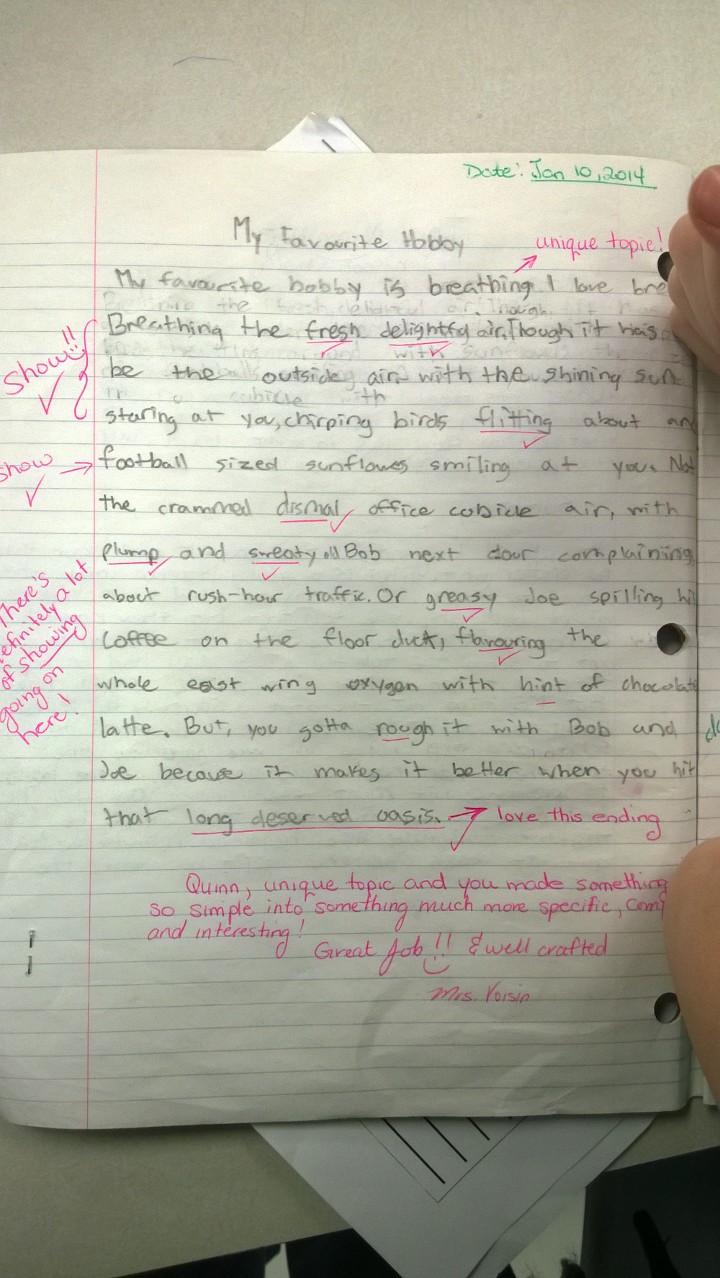 Date: Jan 10, 2014
My Favourite Hobby
unique topic!
My favourite hobby is breathing. I love bre
Breathing the fresh delightful air. Though it has
be the outside air with the shining sun
staring at you, chirping birds flitting about an
football sized sunflowes smiling at you. Not
the crammed dismal office cobicle air, with
plump and sweaty oll Bob next dour complaining
about rush-hour traffic. Or greasy Joe spilling hi
Coffee on the floor duct, flavouring the
whole east wing oxygen with hint of chocolate
latte. But, you gotta rough it with Bob and
Joe because it makes it better when you hit
that long deserved oasis.
love this ending
Show!!
show
There's
definitely a lot
of showing
going on
here!
Quinn, unique topic and you made something
so simple into something much more specific,
and interesting!
Great job!! & well crafted
Mrs. Voisin